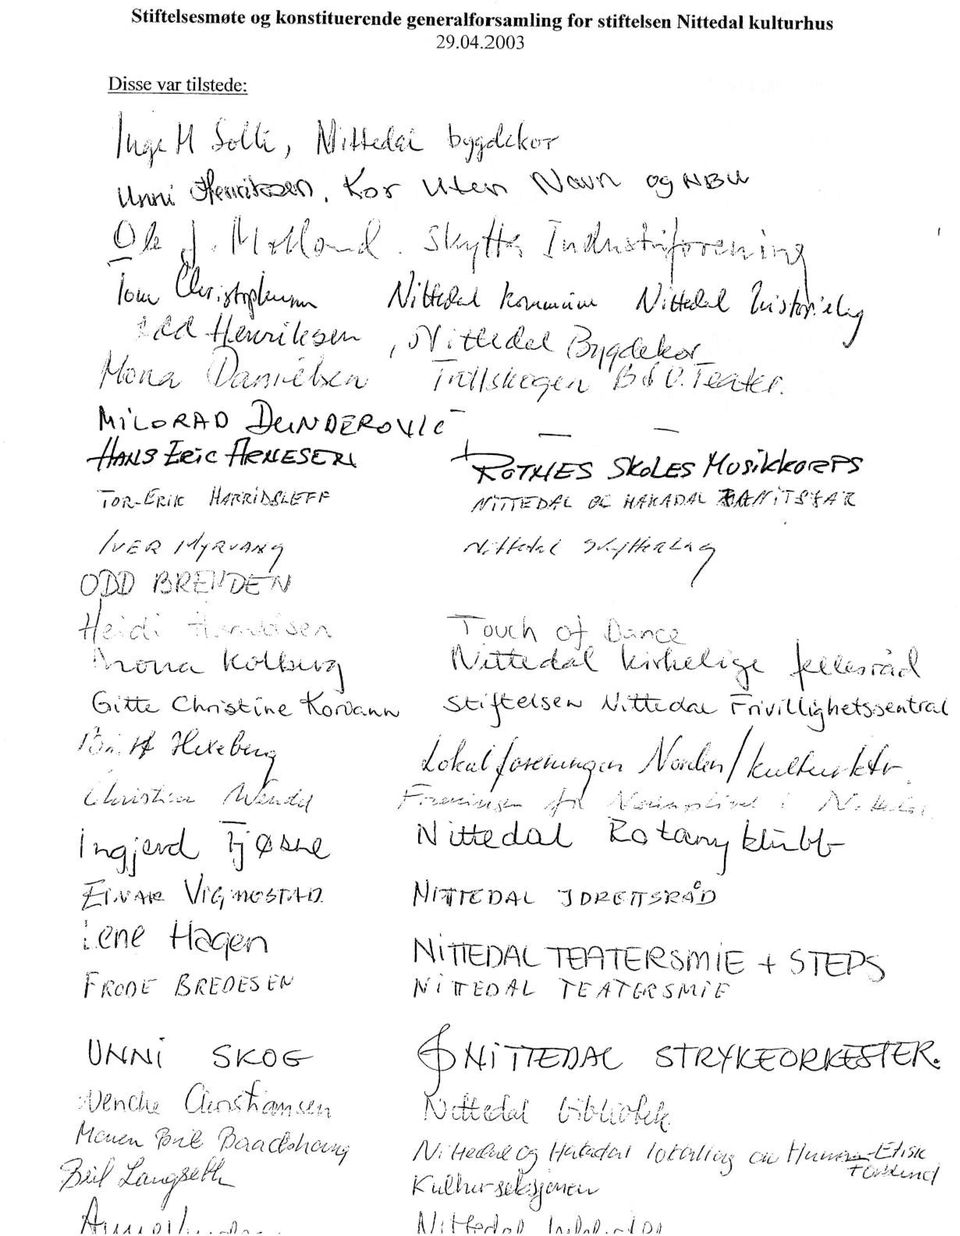 Stiftelsesmøte og konstituerende generalforsamling for stiftelsen Nittedal kulturhus
29.04.2003
Disse var tilstede:
Inge M Solli, Nittedal bygdekor
Unni Henriksen, Kor Uten Navn og NBU
Ole J. Molland. Skytta Industriforening
Tom Christophersen Nittedal kommune Nittedal historielag
Henriksen, Nittedal Bygdekor
Mona Danielsen Trollskogen B&U.Teater.
MILORAD DUNDEROVIĆ — —
HANS ERIC ARNESEN ROTNES SKOLES MUSIKKORPS
TOR-ERIK NITTEDAL OG HAKADAL
IVER MYRVANG Nittedal Skytterlag
ODD BRENDEN
Heidi Touch of Dance
Mona Kolberg Nittedal kirkelige fellesråd
Gitte Christine Korvann Stiftelsen Nittedal Frivillighetssentral
Hexeberg Lokalforeningen Norden/kulturktr.
Christian Foreningen for i
Ingjerd Tjøsne Nittedal Rotaryklubb
EINAR VIGMOSTAD NITTEDAL IDRETTSRÅD
Lene Hagen NITTEDAL TEATERSMIE + STEPS
FRODE BREDESEN NITTEDAL TEATERSMIE
UNNI SKOG NITTEDAL STRYKEORKESTER.
Wenche Christiansen Nittedal bibliotek
Maren Nittedal og Hakadal lokallag av Human-Etisk Forbund
Langseth Kulturseksjonen
Nittedal